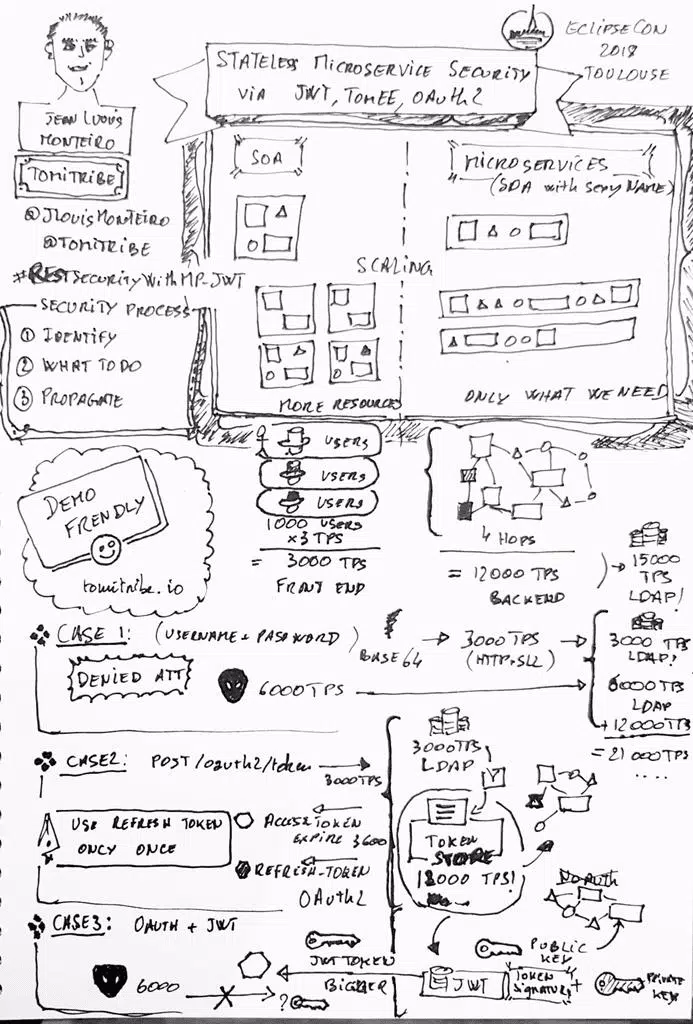 ECLIPSECON
2018
TOULOUSE
STATELESS MICROSERVICE SECURITY
VIA JWT, TOMEE, OAuth2
JEAN LOUIS
MONTEIRO
TOMITRIBE
@JLOUISMONTEIRO
@TOMITRIBE
#RESTSECURITYWITHMP-JWT
SECURITY PROCESS
1 IDENTIFY
2 WHAT TO DO
3 PROPAGATE
SOA
MICROSERVICES
(SOA with sexy NAME)
SCALING
MORE RESOURCES
ONLY WHAT WE NEED
DEMO
FRENDLY
tomitribe.io
USERS
USERS
USERS
1000 USERS
×3 TPS
= 3000 TPS
FRONT END
4 HOPS
= 12000 TPS
BACKEND
15000
TPS
LDAP!
CASE 1: (USERNAME + PASSWORD)
BASE 64
3000 TPS
(HTTP+SLL)
3000 TPS
LDAP!
6000 TPS
LDAP
+ 12000 TPS
= 21 000 TPS
....
DENIED ATT
6000 TPS
CASE2: POST /oauth2/token
3000 TPS
3000 TPS
LDAP
USE REFRESH TOKEN
ONLY ONCE
ACCESS TOKEN
EXPIRE 3600
REFRESH-TOKEN
OAuth2
TOKEN
STORE
12000 TPS!
NO AUTH
CASE3: OAUTH + JWT
6000
?
JWT TOKEN
BIGGER
PUBLIC
KEY
JWT
TOKEN
SIGNATURE
+
PRIVATE
KEY